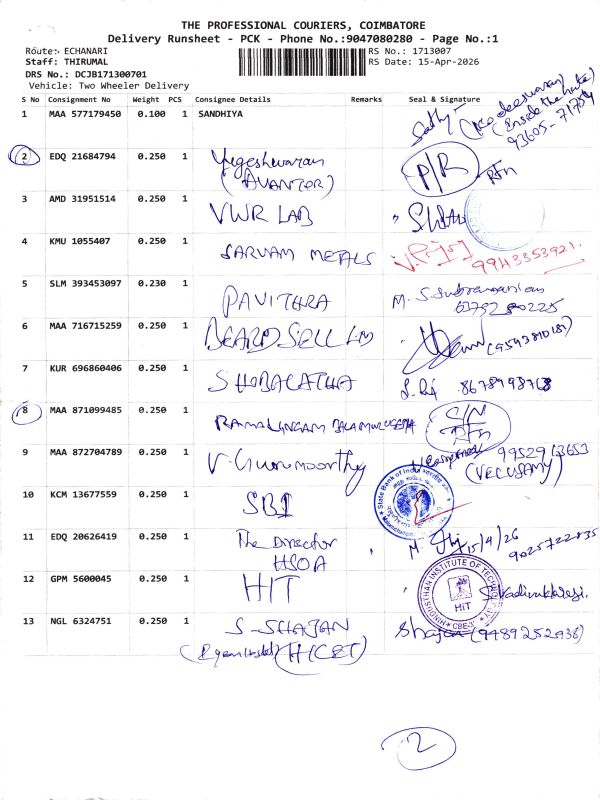 THE PROFESSIONAL COURIERS, COIMBATORE
Delivery Runsheet - PCK - Phone No.:9047080280 - Page No.:1
Route: ECHANARI
Staff: THIRUMAL
DRS No.: DCJB171300701
Vehicle: Two Wheeler Delivery
RS No.: 1713007
RS Date: 15-Apr-2026
S No Consignment No Weight PCS Consignee Details Remarks Seal & Signature
1 MAA 577179450 0.100 1 SANDHIYA
(Inside the
93605-71754
2 EDQ 21684794 0.250 1 Yugeshwaran P/R RTn
(AVANTOR)
3 AMD 31951514 0.250 1 VWR LAB
4 KMU 1055407 0.250 1 SARVAM METALS 9943353921
5 SLM 393453097 0.230 1 PAVITHRA M. S. Subramanian
6 MAA 716715259 0.250 1 BEARDSELL LTD
7 KUR 696860406 0.250 1 SHOBALATHA
8 MAA 871099485 0.250 1 RAMALINGAM BALAMURUGESH S/N
RTn
9 MAA 872704789 0.250 1 V. Gurumoorthy 9952913653
(VELUSAMY)
State Bank of India
10 KCM 13677559 0.250 1 SBI
11 EDQ 20626419 0.250 1 The Director 15/4/26
HSOA 9025722835
12 GPM 5600045 0.250 1 HIT S. Vadivukkarasi.
HINDUSTHAN INSTITUTE OF TECHNOLOGY
HIT
CBE-32
13 NGL 6324751 0.250 1 S-SHAJAN Shajan (9489252936)
(HICET)
2